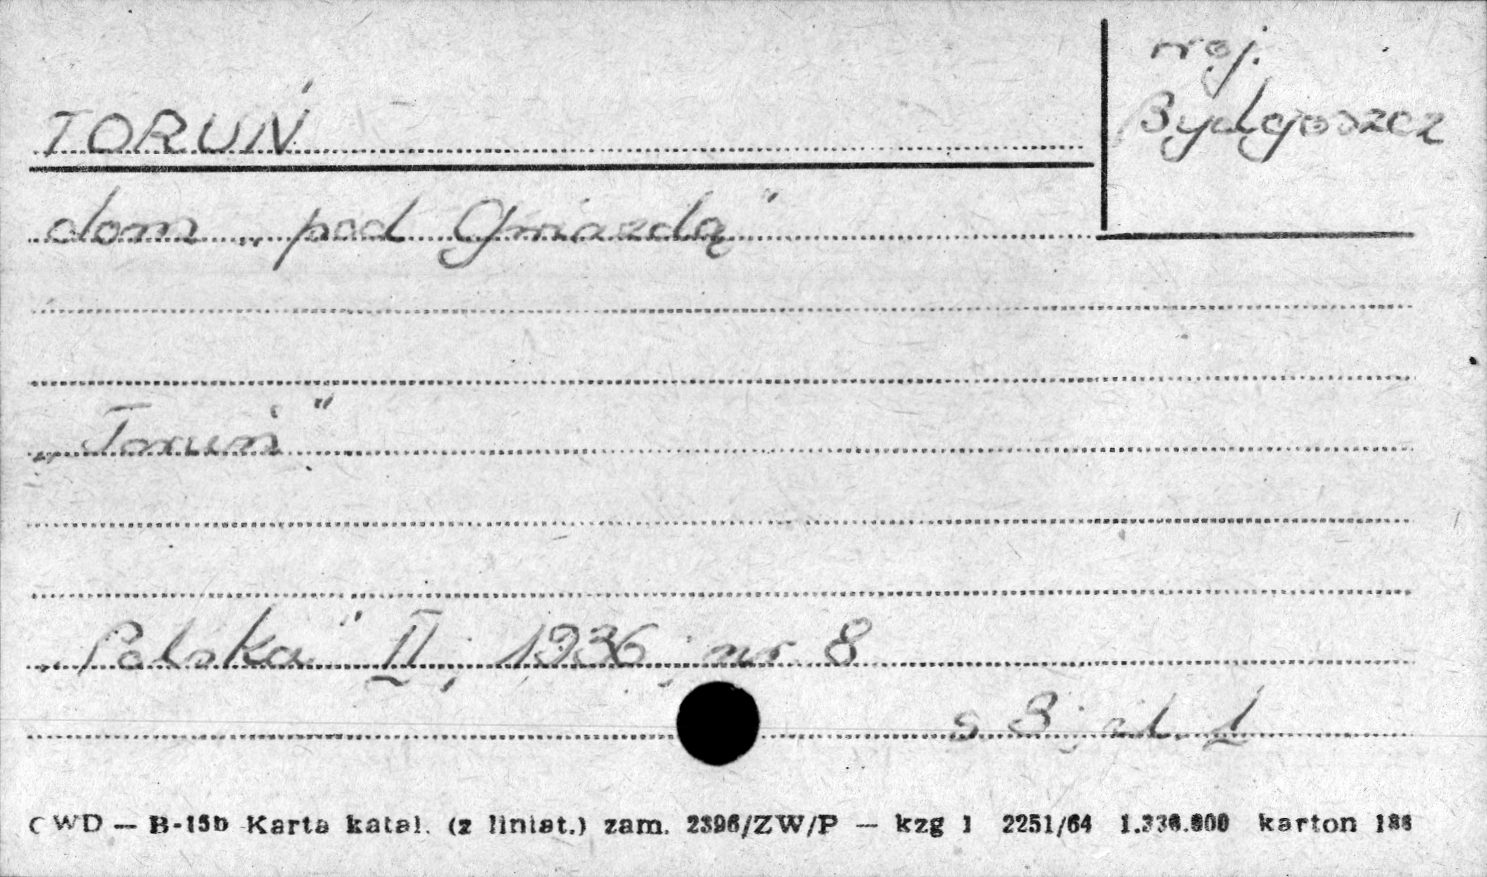 woj.
Bydgoszcz
TORUŃ
dom „pod Gwiazdą"
„Toruń"
„Polska" II; 1936; nr 8
s. 3; il. 1
CWD — B-15b Karta katal. (z liniat.) zam. 2396/ZW/P — kzg 1 2251/64 karton